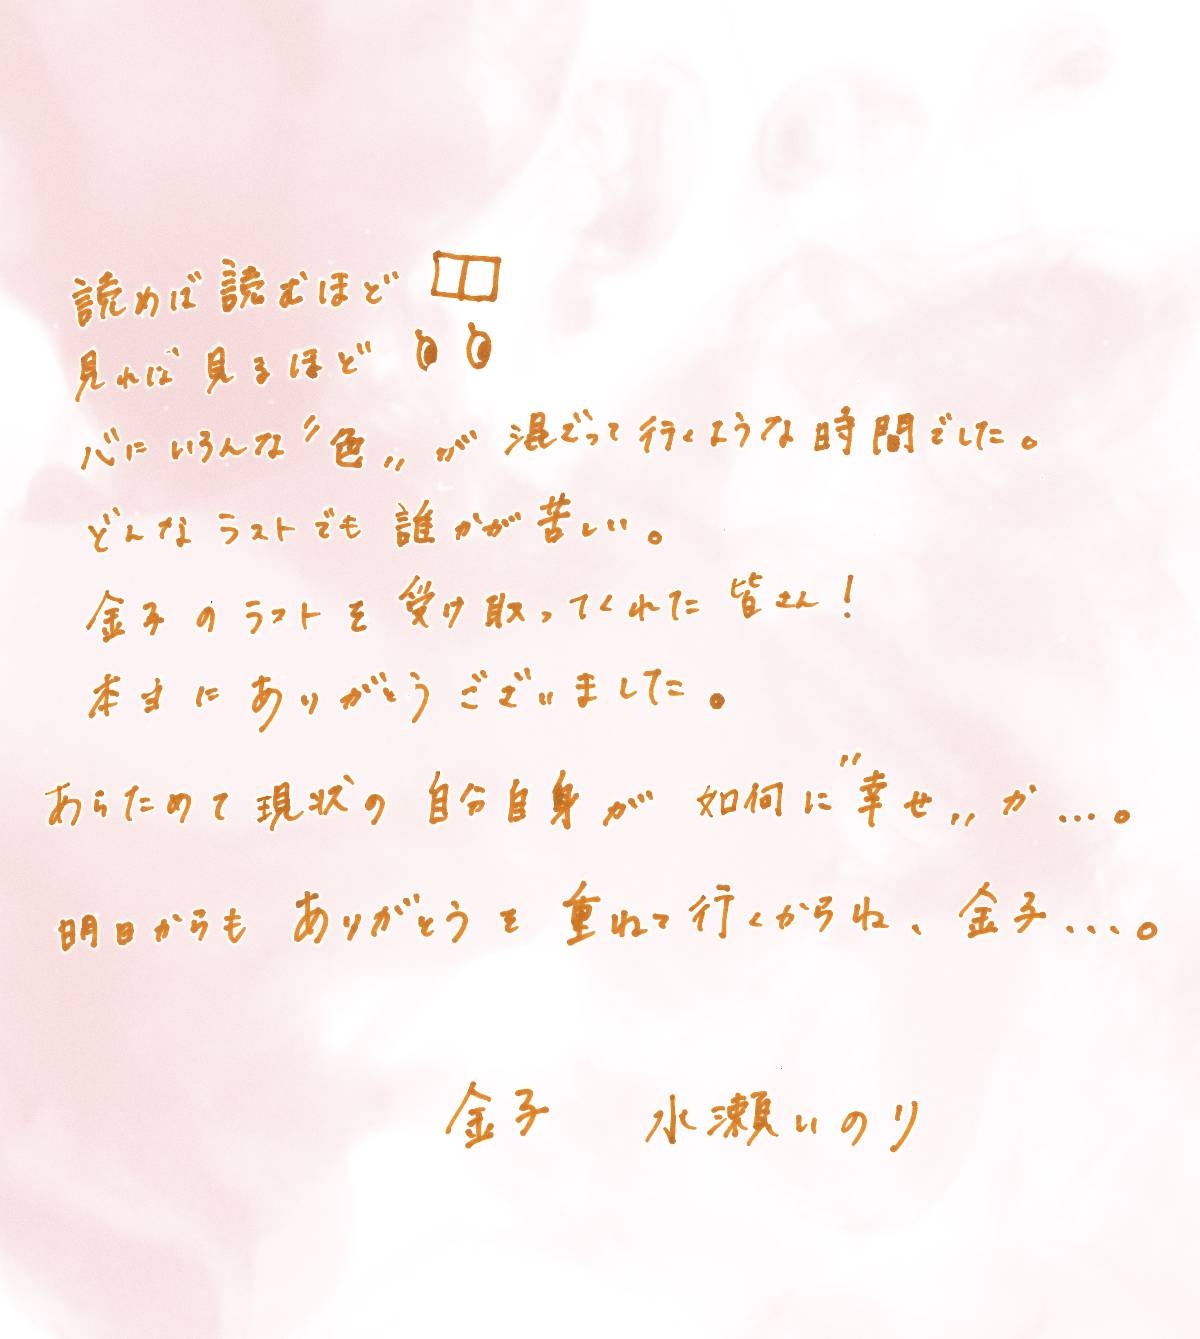 読めば読むほど
見れば見るほど
心にいろんな〝色〟が混ざって行くような時間でした。
どんなラストでも誰かが苦しい。
金子のラストを受け取ってくれた皆さん!
本当にありがとうございました。
あらためて現状の自分自身が如何に〝幸せ〟か…。
明日からもありがとうを重ねて行くからね、金子…。
金子 水瀬いのり